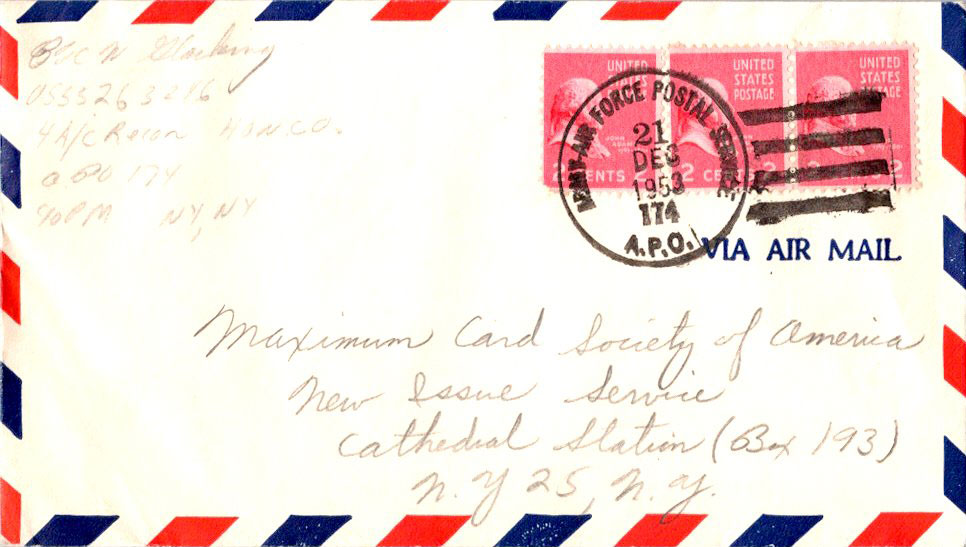 PVC W
US5526 3216
4 A/c Recon
APO 174
% PM NY, NY
UNITED STATES POSTAGE
JOHN ADAMS
2 CENTS 2
UNITED STATES POSTAGE
2 CENTS 2
UNITED STATES POSTAGE
2
ARMY-AIR FORCE POSTAL SERVICE
21
DEC
1953
174
A.P.O.
VIA AIR MAIL
Maximum Card Society of America
New Issue Service
Cathedral Station (Box 193)
N. Y 25, N. Y.